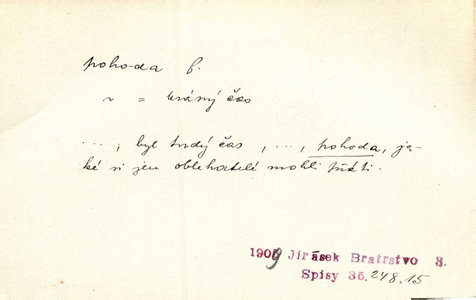 pohoda f.
~ = krásný čas
..., byl tudý čas, ..., pohoda, ja-
ké si jen oblehatelé mohli přáti.
1909 Jirásek Bratrstvo 3.
Spisy 36. 248.15